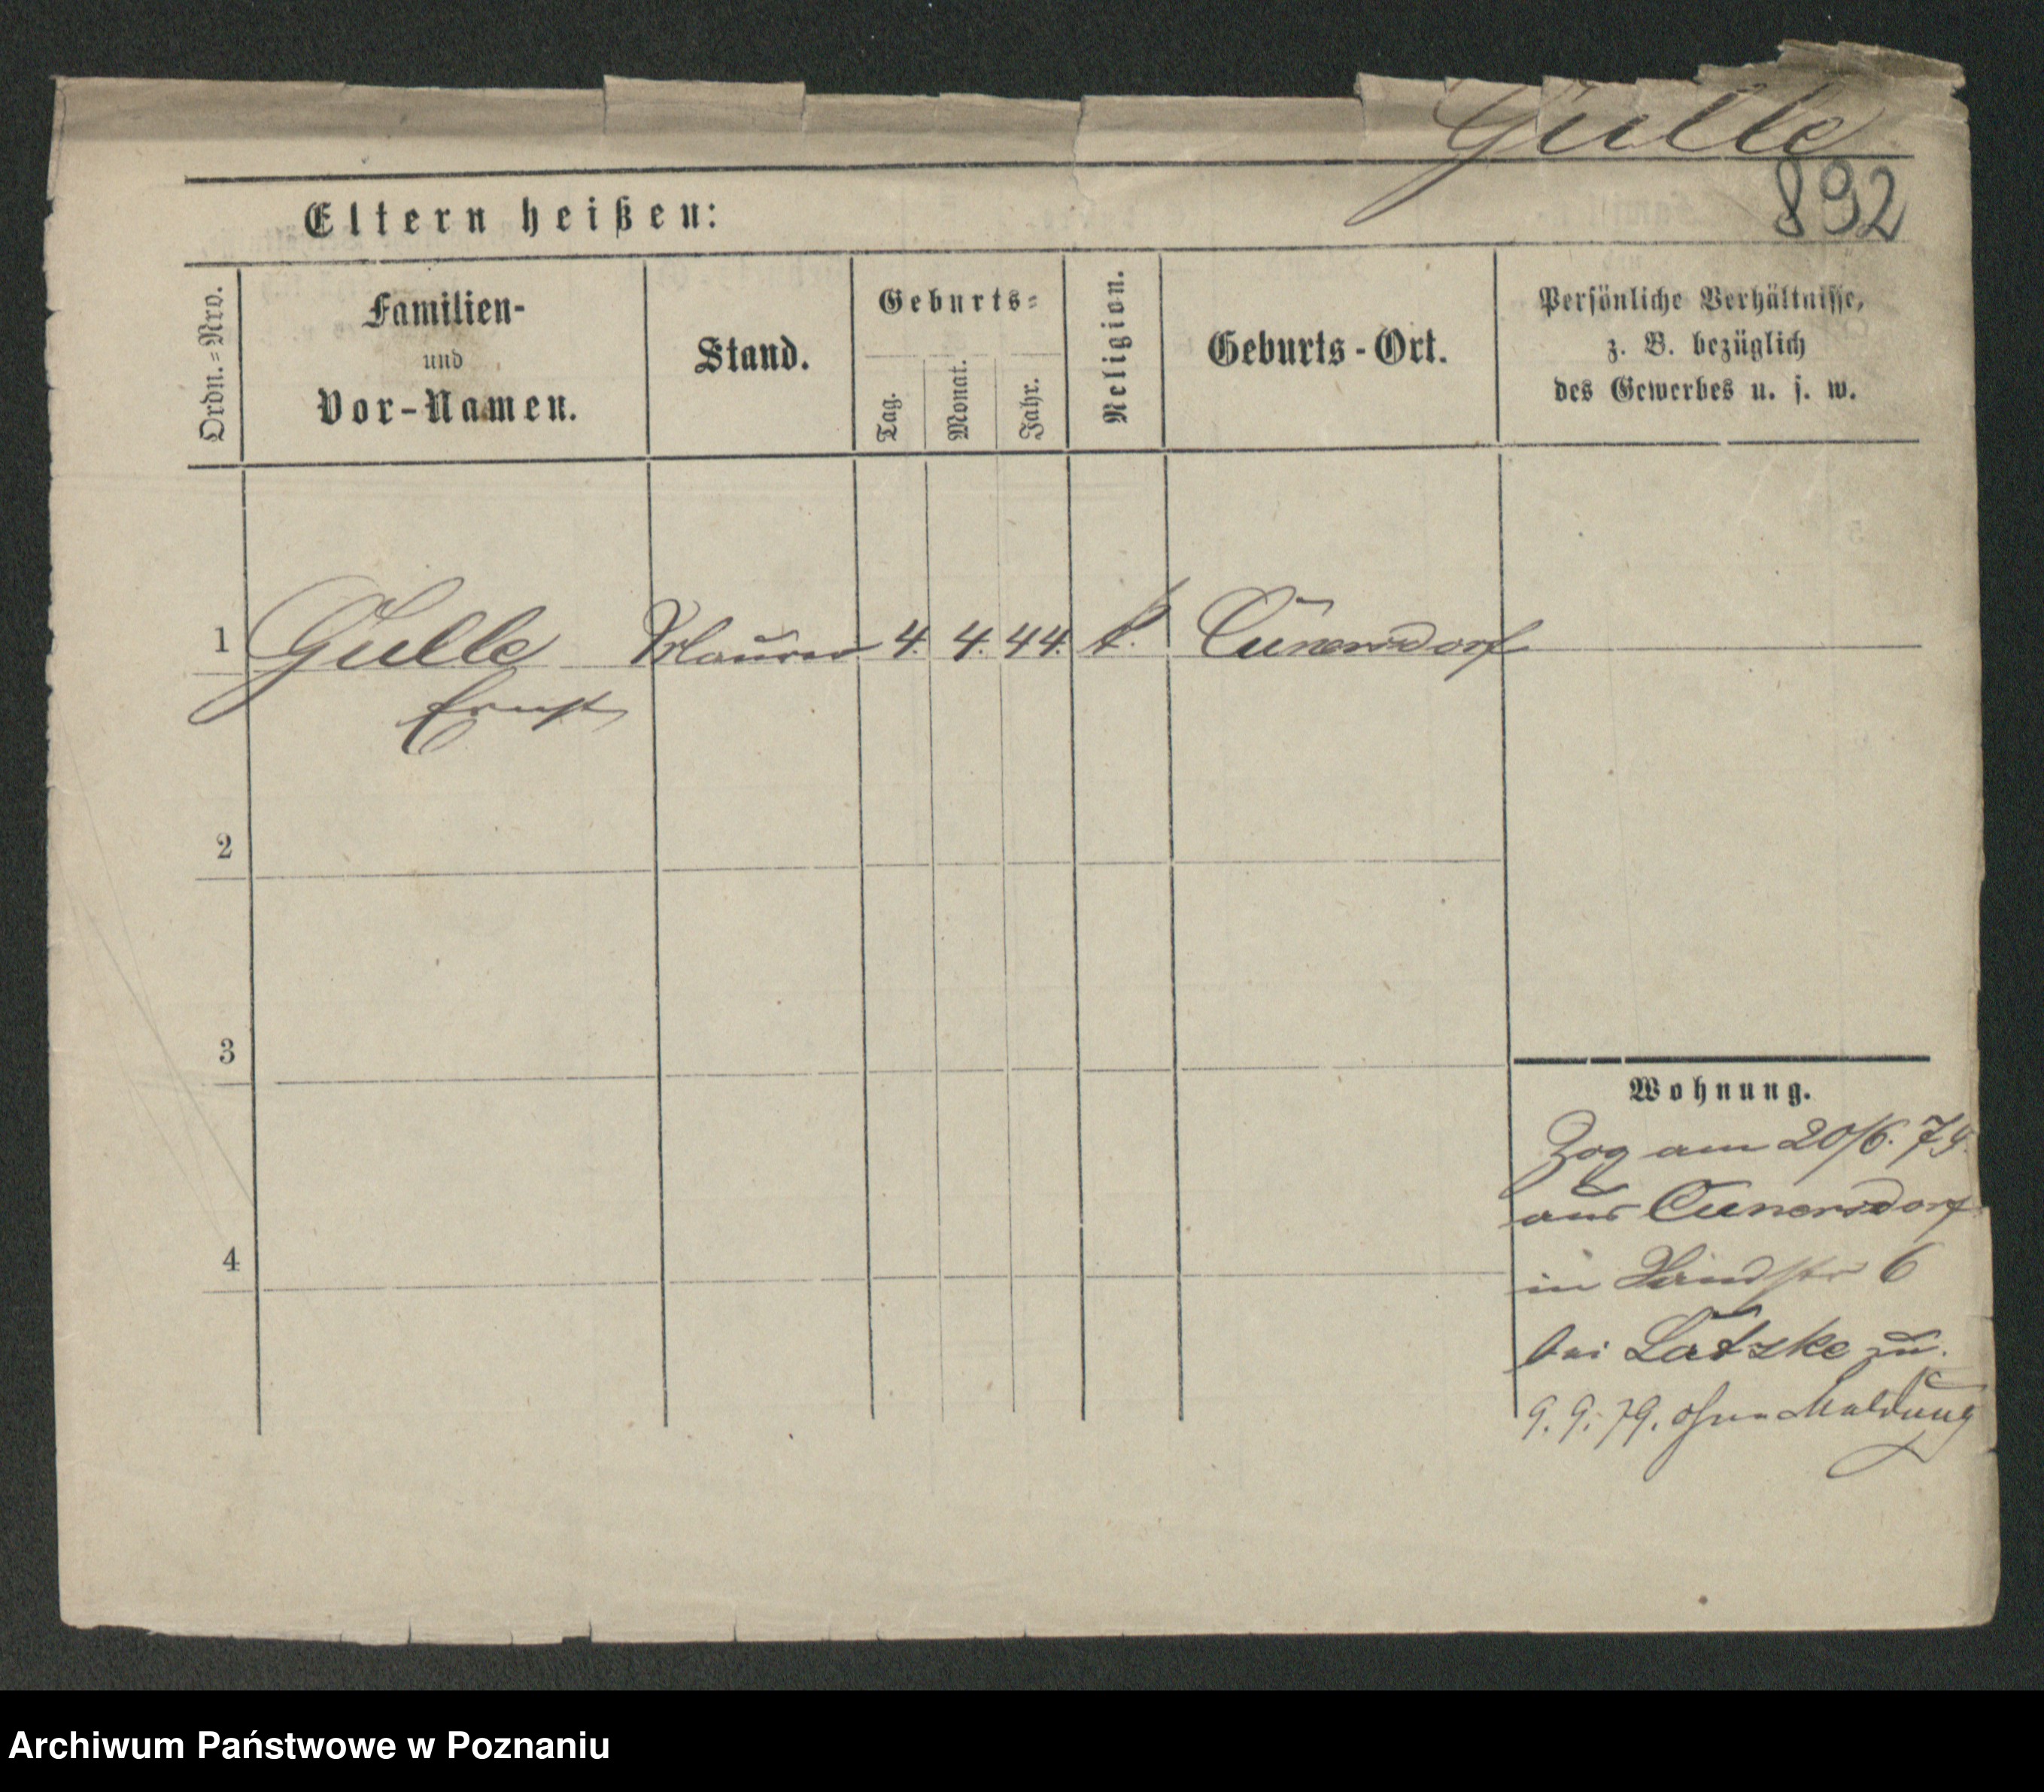 Gulle
892
Eltern heißen:
Ordn.=Nro.
Familien-
und
Vor-Namen.
Stand.
Geburts=
Tag.
Monat.
Jahr.
Religion.
Geburts-Ort.
Persönliche Verhältnisse,
z. B. bezüglich
des Gewerbes u. s. w.
1 Gulle Maurer 4. 4. 44. k. Cunersdorf
Ernst
2
3
4
Wohnung.
Zog am 20/6. 79.
aus Cunersdorf
in 6
bei Latzke zu.
9. 9. 79. ohne Meldung
Archiwum Państwowe w Poznaniu